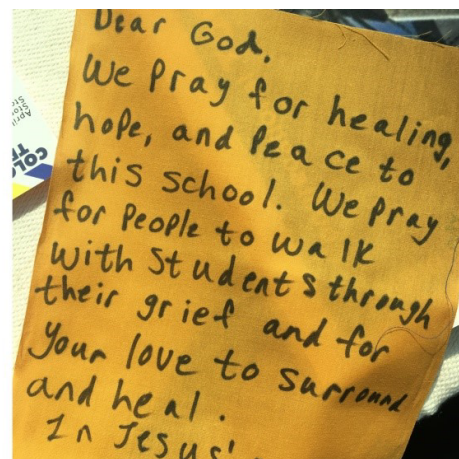 Dear God,
We pray for healing,
hope, and peace to
this school. We pray
for people to walk
with students through
their grief and for
your love to surround
and heal.
In Jesus'
COLO
April